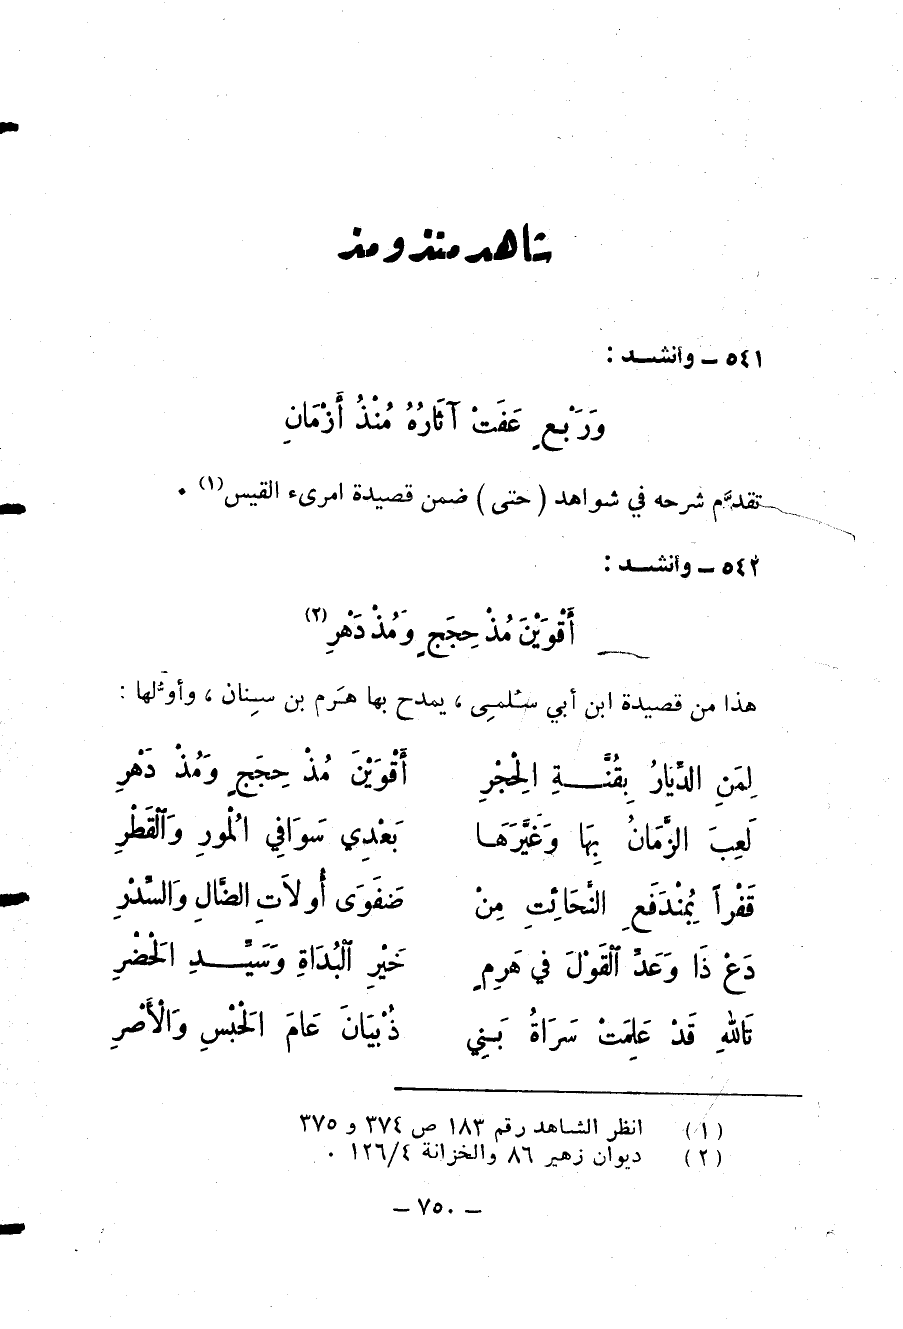 شاهد منذ ومذ
٥٤١ ــ وأنشد :
وَرَبْعٍ عَفَتْ آثَارُهُ مُنْذُ أَزْمَانِ
تقدّم شرحه في شواهد ( حتى ) ضمن قصيدة امرىء القيس(١) .
٥٤٢ ــ وأنشد :
أَقْوَيْنَ مُذْ حِجَجٍ وَمُذْ دَهْرِ(٢)
هذا من قصيدة ابن أبي سُلمى ، يمدح بها هَرم بن سِنان ، وأوّلها :
لِمَنِ الدِّيَارُ بِقُنَّــةِ الْحِجْرِ أَقْوَيْنَ مُذْ حِجَجٍ وَمُذْ دَهْرِ
لَعِبَ الزَّمَانُ بِهَا وَغَيَّرَهَا بَعْدِي سَوَافِي الْمُورِ وَالْقَطْرِ
قَفْراً بِمُنْدَفَعِ النَّحَائِتِ مِنْ ضَفَوَى أُولاَتِ الضَّالِ وَالسِّدْرِ
دَعْ ذَا وَعَدِّ الْقَوْلَ فِي هَرِمٍ خَيْرِ الْبُدَاةِ وَسَيِّــدِ الْحَضْرِ
تَاللهِ قَدْ عَلِمَتْ سَرَاةُ بَنِي ذُبْيَانَ عَامَ الْحَبْسِ وَالْأَصْرِ
(١) انظر الشاهد رقم ١٨٣ ص ٣٧٤ و ٣٧٥
(٢) ديوان زهير ٨٦ والخزانة ٤/١٢٦ .
– ٧٥٠ –